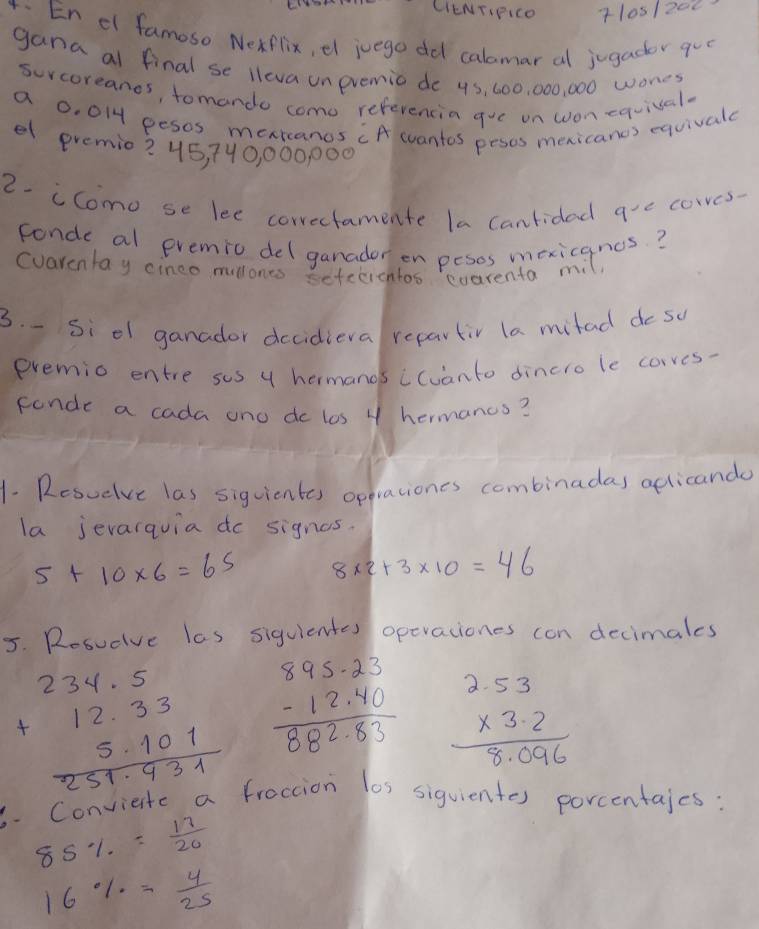 CIENTIFICO 7/05/202
1. En el famoso Nexflix, el juego del calamar al jugador que
gana al final se lleva un premio de 45,600,000,000 wones
surcoreanos, tomando como referencia que un won equivale
a 0.014 pesos mexicanos ¿A cuantos pesos mexicanos equivale
el premio? 45,740,000,000
2- ¿Como se lee correctamente la cantidad que corres-
ponde al premio del ganador en pesos mexicanos?
Cuarenta y cinco millones setecientos cuarenta mil.
3.- Si el ganador decidiera repartir la mitad de su
premio entre sus 4 hermanos ¿Cuánto dinero le corres-
ponde a cada uno de los 4 hermanos?
1. Resuelve las siguientes operaciones combinadas aplicando
la jerarquia de signos.
5 + 10 x 6 = 65 8x2+3x10 = 46
5. Resuelve las siguientes operaciones con decimales
234.5 895.23 2.53
+ 12.33 - 12.40 x 3.2
5.101 882.83 8.096
251.931
6.- Convierte a fraccion los siguientes porcentajes:
85%. = 17/20
16 %. = 4/25